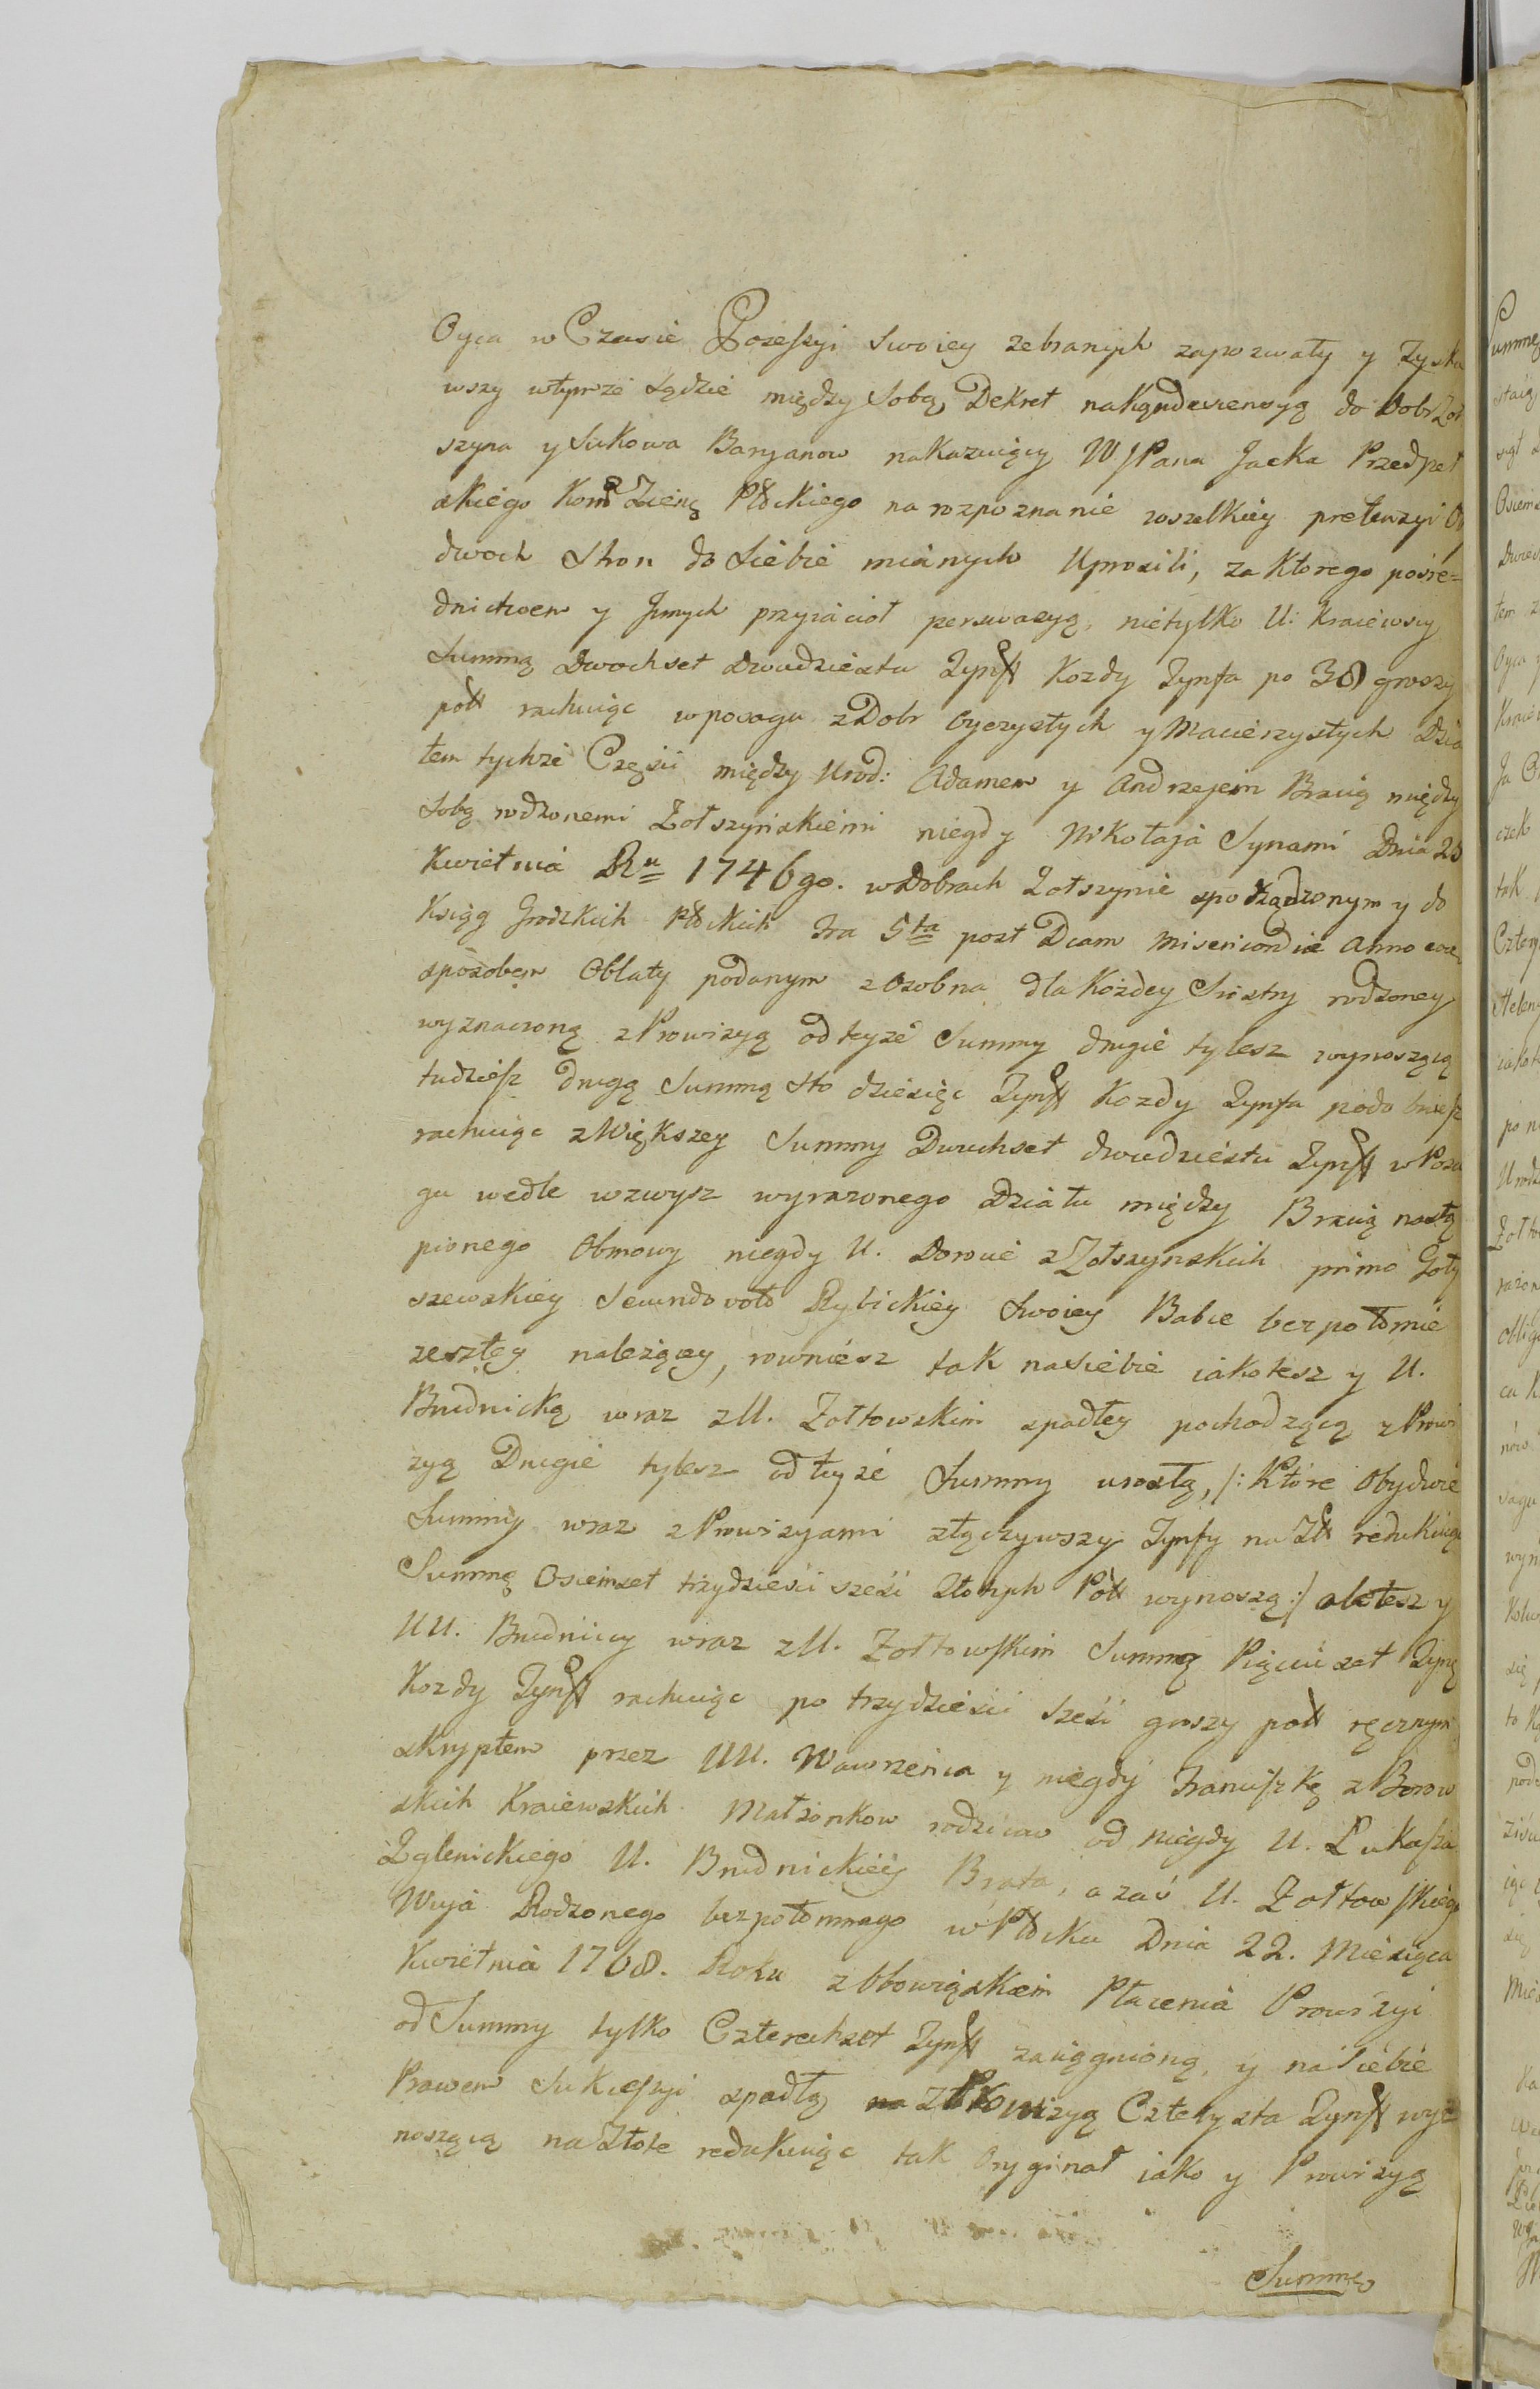 Oyca w Czasie Possessyi Swoiey zebranych zapozwały y Zyska
wszy wtymże Sądzie między Sobą Dekret naKądescensyą do Dobr Zoł
szyna y Sukowa Baryanow nakazuiący WJPana Jacka Przedpeł
skiego Kom Ziem Płockiego na rozpoznanie wszelkiey pretensyi O
dwoch Stron do Siebie mianych Uprosili, za Ktorego posre=
dnictwem y Jnnych przyiacioł perswazyą, nietylko U: Kraiewscy
Summą Dwochset Dwudziestu Zynff Kozdy Zynfa po 38 groszy
poll rachuiąc wposagu zDobr Oyczystych y Macierzystych Dzia
łem tychże Częsci między Urod: Adamem y Andrzejem Bracią między
Sobą rodzonemi Zołszyńskiemi niegdy Mikołaja Synami Dnia 25
Kwietnia Ru 1746go. wDobrach Zołszynie sporządzonym y do
Ksiąg Grodzkich Płockich Fra 5ta post Dcam Misericordiæ Anno eod
sposobem Oblaty podanym zOsobna dla Kożdey Siostry rodzoney
wyznaczoną zProwizyą od teyże Summy drugie tylesz wynoszącą
tudziesz drugą Summą Sto dziesięc Zynff Kozdy Zynfa podobniesz
rachuiąc zWiększey Summy Dwuchset dwudziestu Zynff w Posa
gu wedle wzwysz wyrazonego Działu między Bracią nastą
pionego Obmowy niegdy U. Dorocie zZołszynskich primo Goły
szewskiey Secundo voto Rybickiey Swoiey Babce bezpotomie
zeszłey nalezącey, rowniesz tak naSiebie iakotesz y U.
Brudnicką wraz zU. Zołtowskim spadłey pochodzącą zProwi
zyą Drugie tylesz od teyże Summy urosłą, /: Które Obydwie
Summy wraz zProwizyami złączywszy Zynfy na Złł redukuiąc
Summę Osiemset trzydziesci szesc Złotych Poll wynoszą :/ aletesz y
UU. Brudniccy wraz zU. Zołtowskim Summą Pięcuset Zynf
Kozdy Zynff rachuiąc po trzydziesci szesc groszy poll ręcznym
skryptem przez UU. Wawrzenca y niegdy Franciszkę zBorow
skich Kraiewskich Małzonkow rodzicow od niegdy U. Łukasza
Zglenickiego U. Brudnickiey Brata, a zaś U. Zołtowskiego
Wuja Rodzonego bezpotomnego w Płocku Dnia 22. Miesiąca
Kwietnia 1768. Roku zObowiąskiem Płacenia Prowizyi
od Summy tylko Czterechset Zynff zaciągnioną, y naSiebie
Prawem Sukcessyi spadłą zProwizyą Czterysta Zynff wy
noszącą na Złote redukuiąc tak Oryginał iako y Prowizyą
Summę